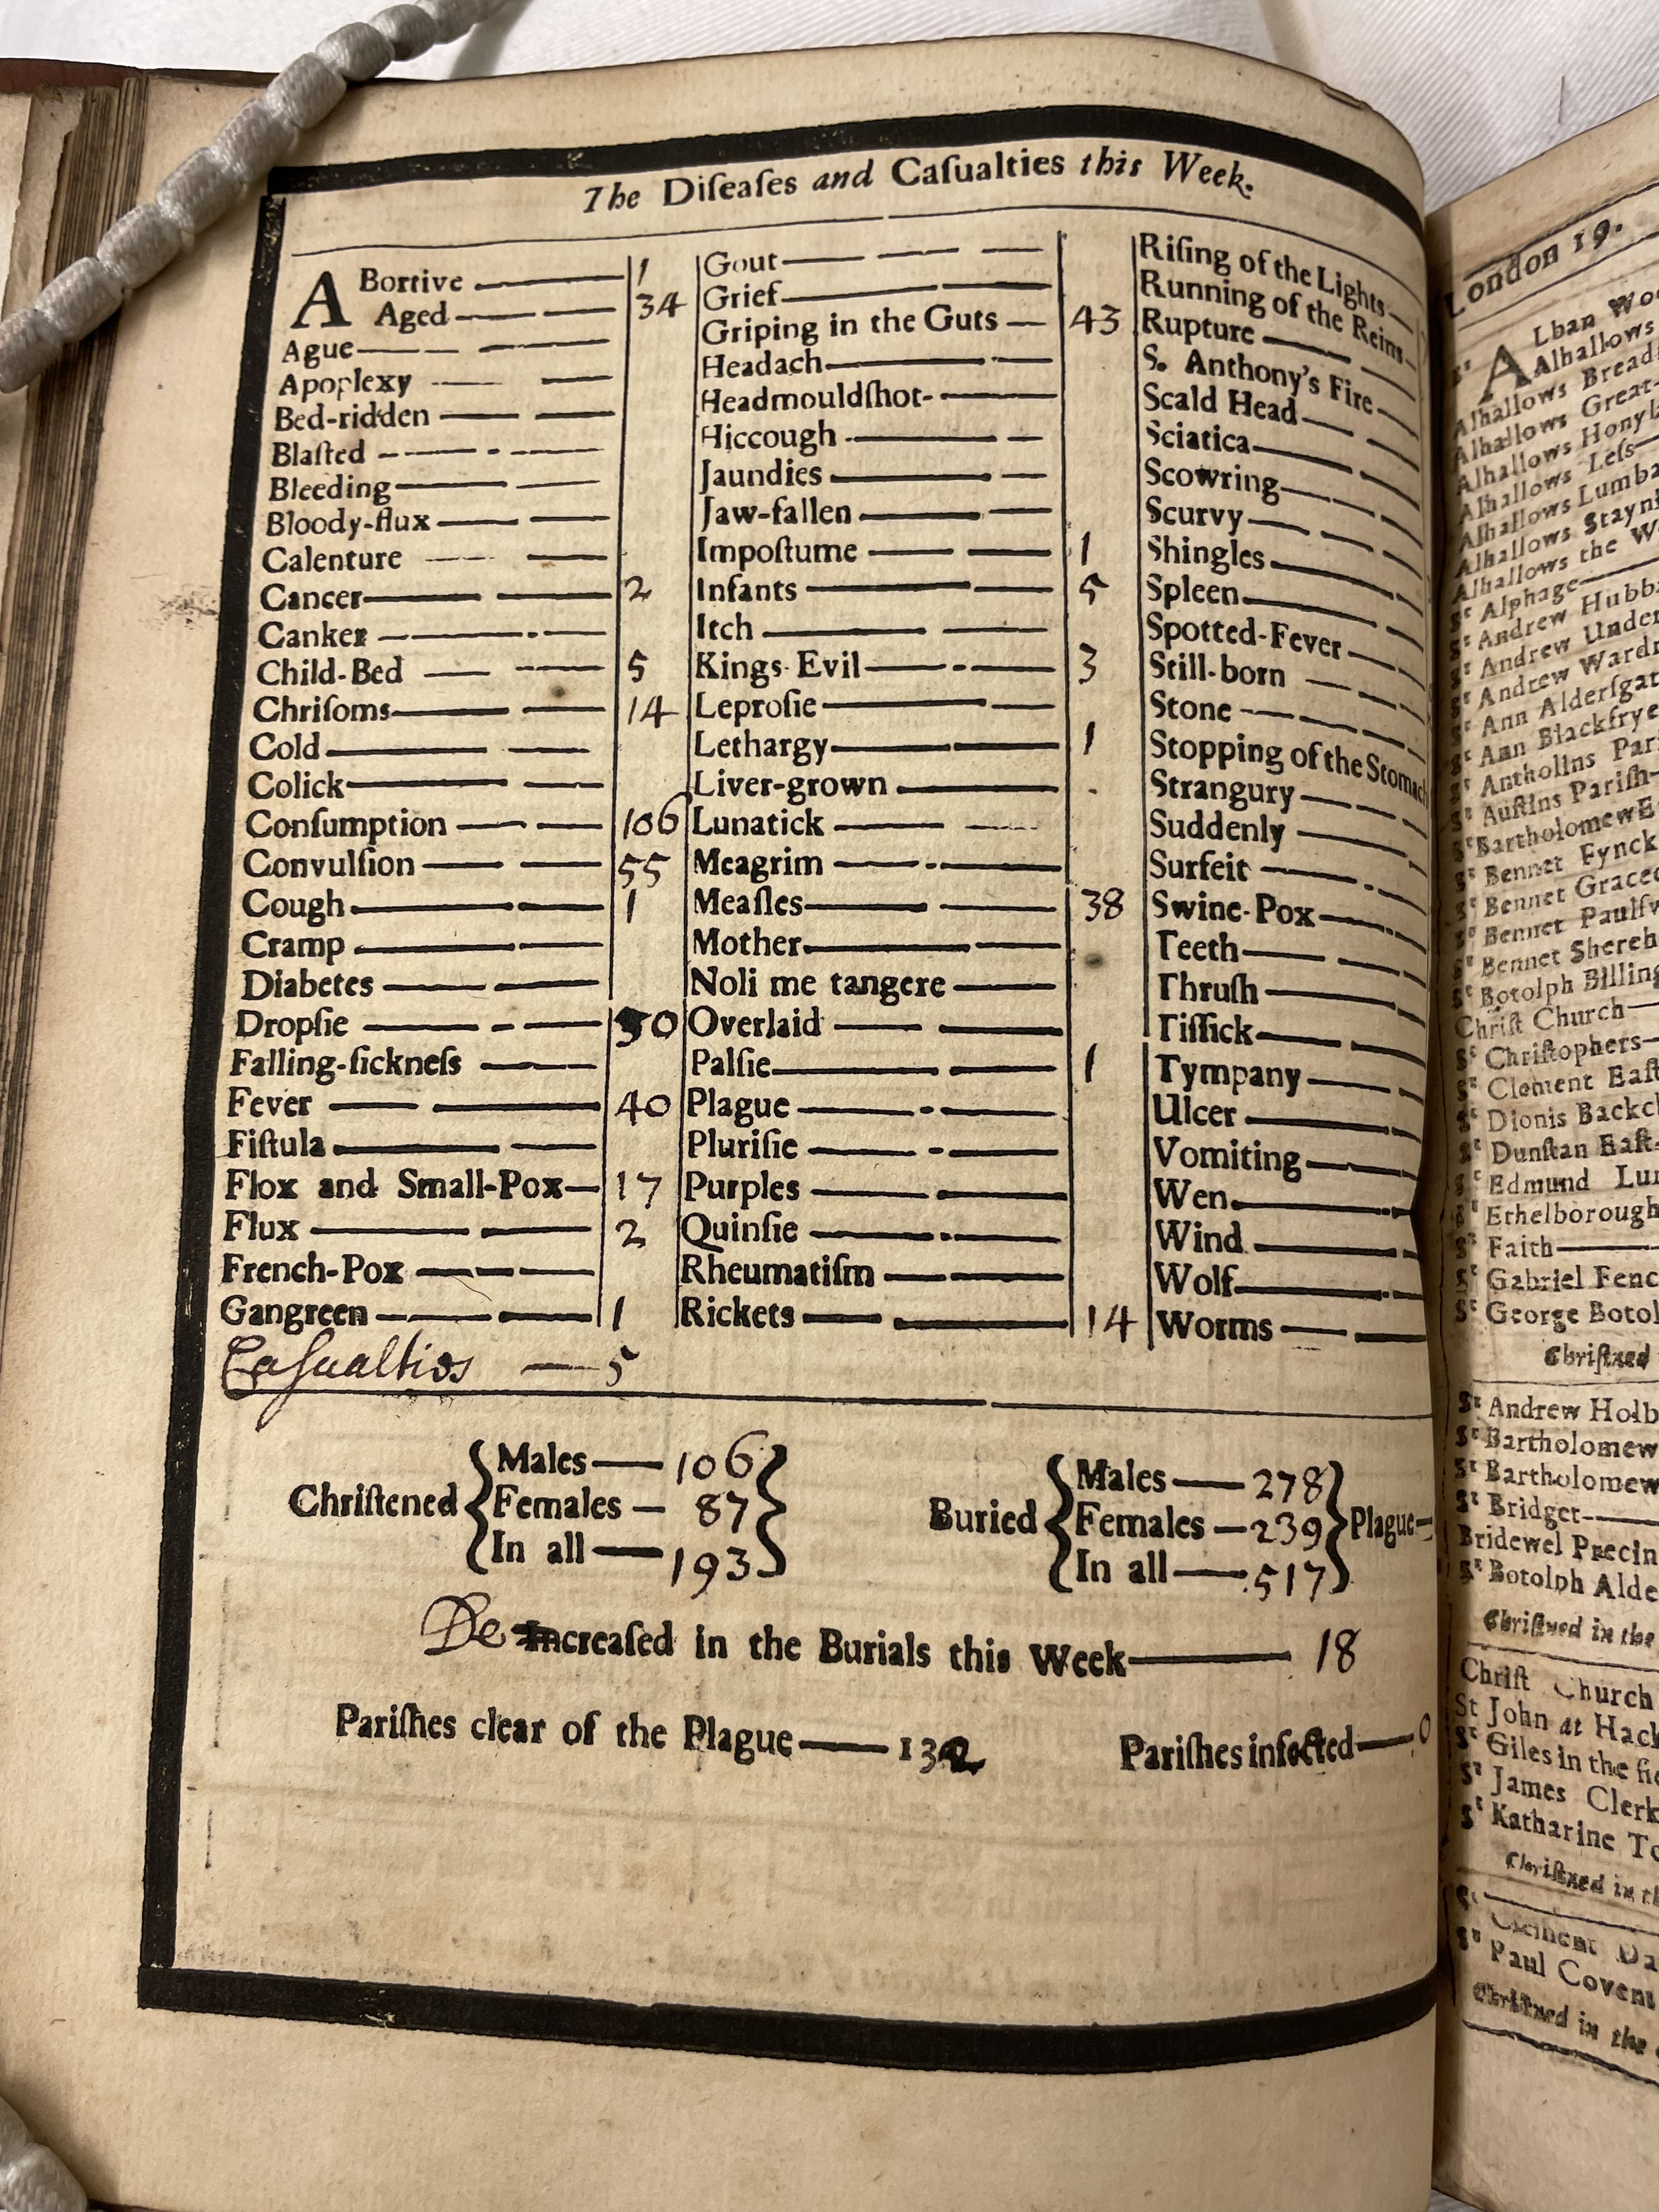 The Diſeaſes and Caſualties this Week.
ABortive 1
Aged 34
Ague
Apoplexy
Bed-ridden
Blaſted
Bleeding
Bloody-flux
Calenture
Cancer 2
Canker
Child-Bed 5
Chriſoms 14
Cold
Colick
Conſumption 106
Convulſion 55
Cough 1
Cramp
Diabetes
Dropſie 30
Falling-ſickneſs
Fever 40
Fiſtula
Flox and Small-Pox 17
Flux 2
French-Pox
Gangreen 1
Caſualties 5
Gout
Grief
Griping in the Guts 43
Headach
Headmouldſhot
Hiccough
Jaundies
Jaw-fallen
Impoſtume 1
Infants 5
Itch
Kings-Evil 3
Leproſie
Lethargy 1
Liver-grown
Lunatick
Meagrim
Meaſles 38
Mother
Noli me tangere
Overlaid
Palſie 1
Plague
Pluriſie
Purples
Quinſie
Rheumatiſm
Rickets 14
Riſing of the Lights
Running of the Reins
Rupture
S. Anthony's Fire
Scald Head
Sciatica
Scowring
Scurvy
Shingles
Spleen
Spotted-Fever
Still-born
Stone
Stopping of the Stomach
Strangury
Suddenly
Surfeit
Swine-Pox
Teeth
Thruſh
Tiſſick
Tympany
Ulcer
Vomiting
Wen
Wind
Wolf
Worms
Chriſtened
Males 106
Females 87
In all 193
Buried
Males 278
Females 239
In all 517
Plague
De Increaſed in the Burials this Week 18
Pariſhes clear of the Plague 132 Pariſhes infected 0
London 19.
St ALban
Alhallows
Alhallows
Alhallows Great
Alhallows
Alhallows Leſs
Alhallows
Alhallows
Alhallows the
St Alphage
St Andrew
St Andrew
St Andrew
St Ann
St Ann
St
St Auſtins Pariſh
St Bartholomew
St Bennet Fynck
St Bennet
St Bennet
St Bennet
St Botolph
Chriſt Church
St Chriſtophers
St Clement
St Dionis
St Dunſtan Eaſt
St Edmund
St Ethelborough
St Faith
St Gabriel
St George
Chriſtned
St Andrew
St Bartholomew
St Bartholomew
St Bridget
Bridewel
St Botolph
Chriſtned in the
Chriſt Church
St John at
St Giles in the
St James
St Katharine
Chriſtned in
St Clement
St Paul
Chriſtned in the